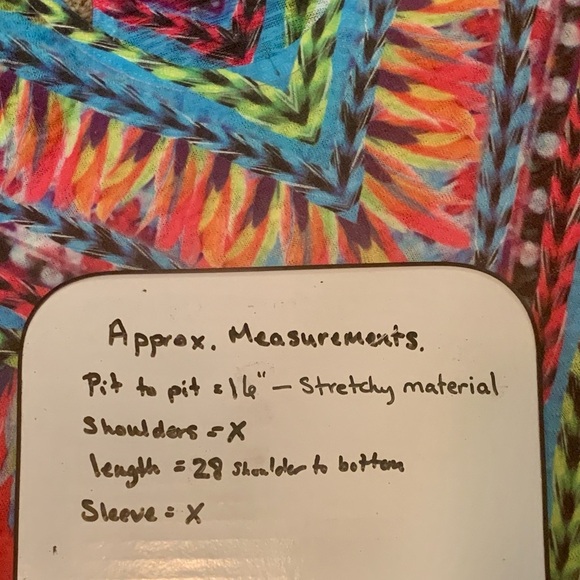 Approx. Measurements.
Pit to pit = 16" - Stretchy material
Shoulders = X
length = 28 shoulder to bottom
Sleeve = X